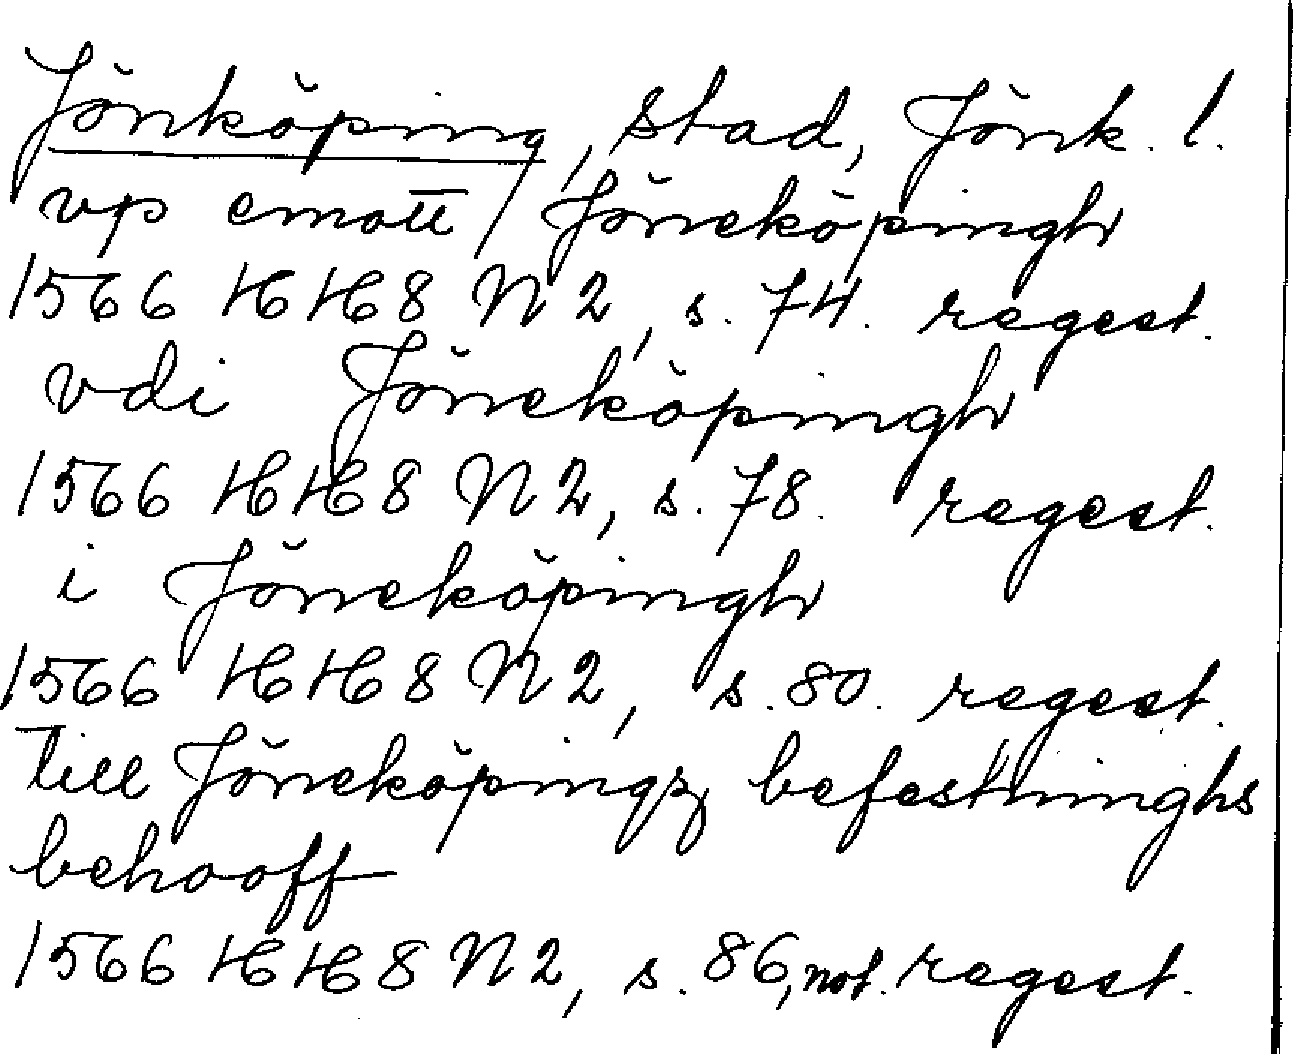 Jönköping, stad, Jönk. l.
vp emott Jöneköpingh
1566 HH8 N2, s. 74. regest.
vdi Jöneköpingh
1566 HH8 N2, s. 78. regest.
i Jöneköpingh
1566 HH8 N2, s. 80. regest.
till Jöneköpingz befestninghs
behooff
1566 HH8 N2, s. 86, not. regest.